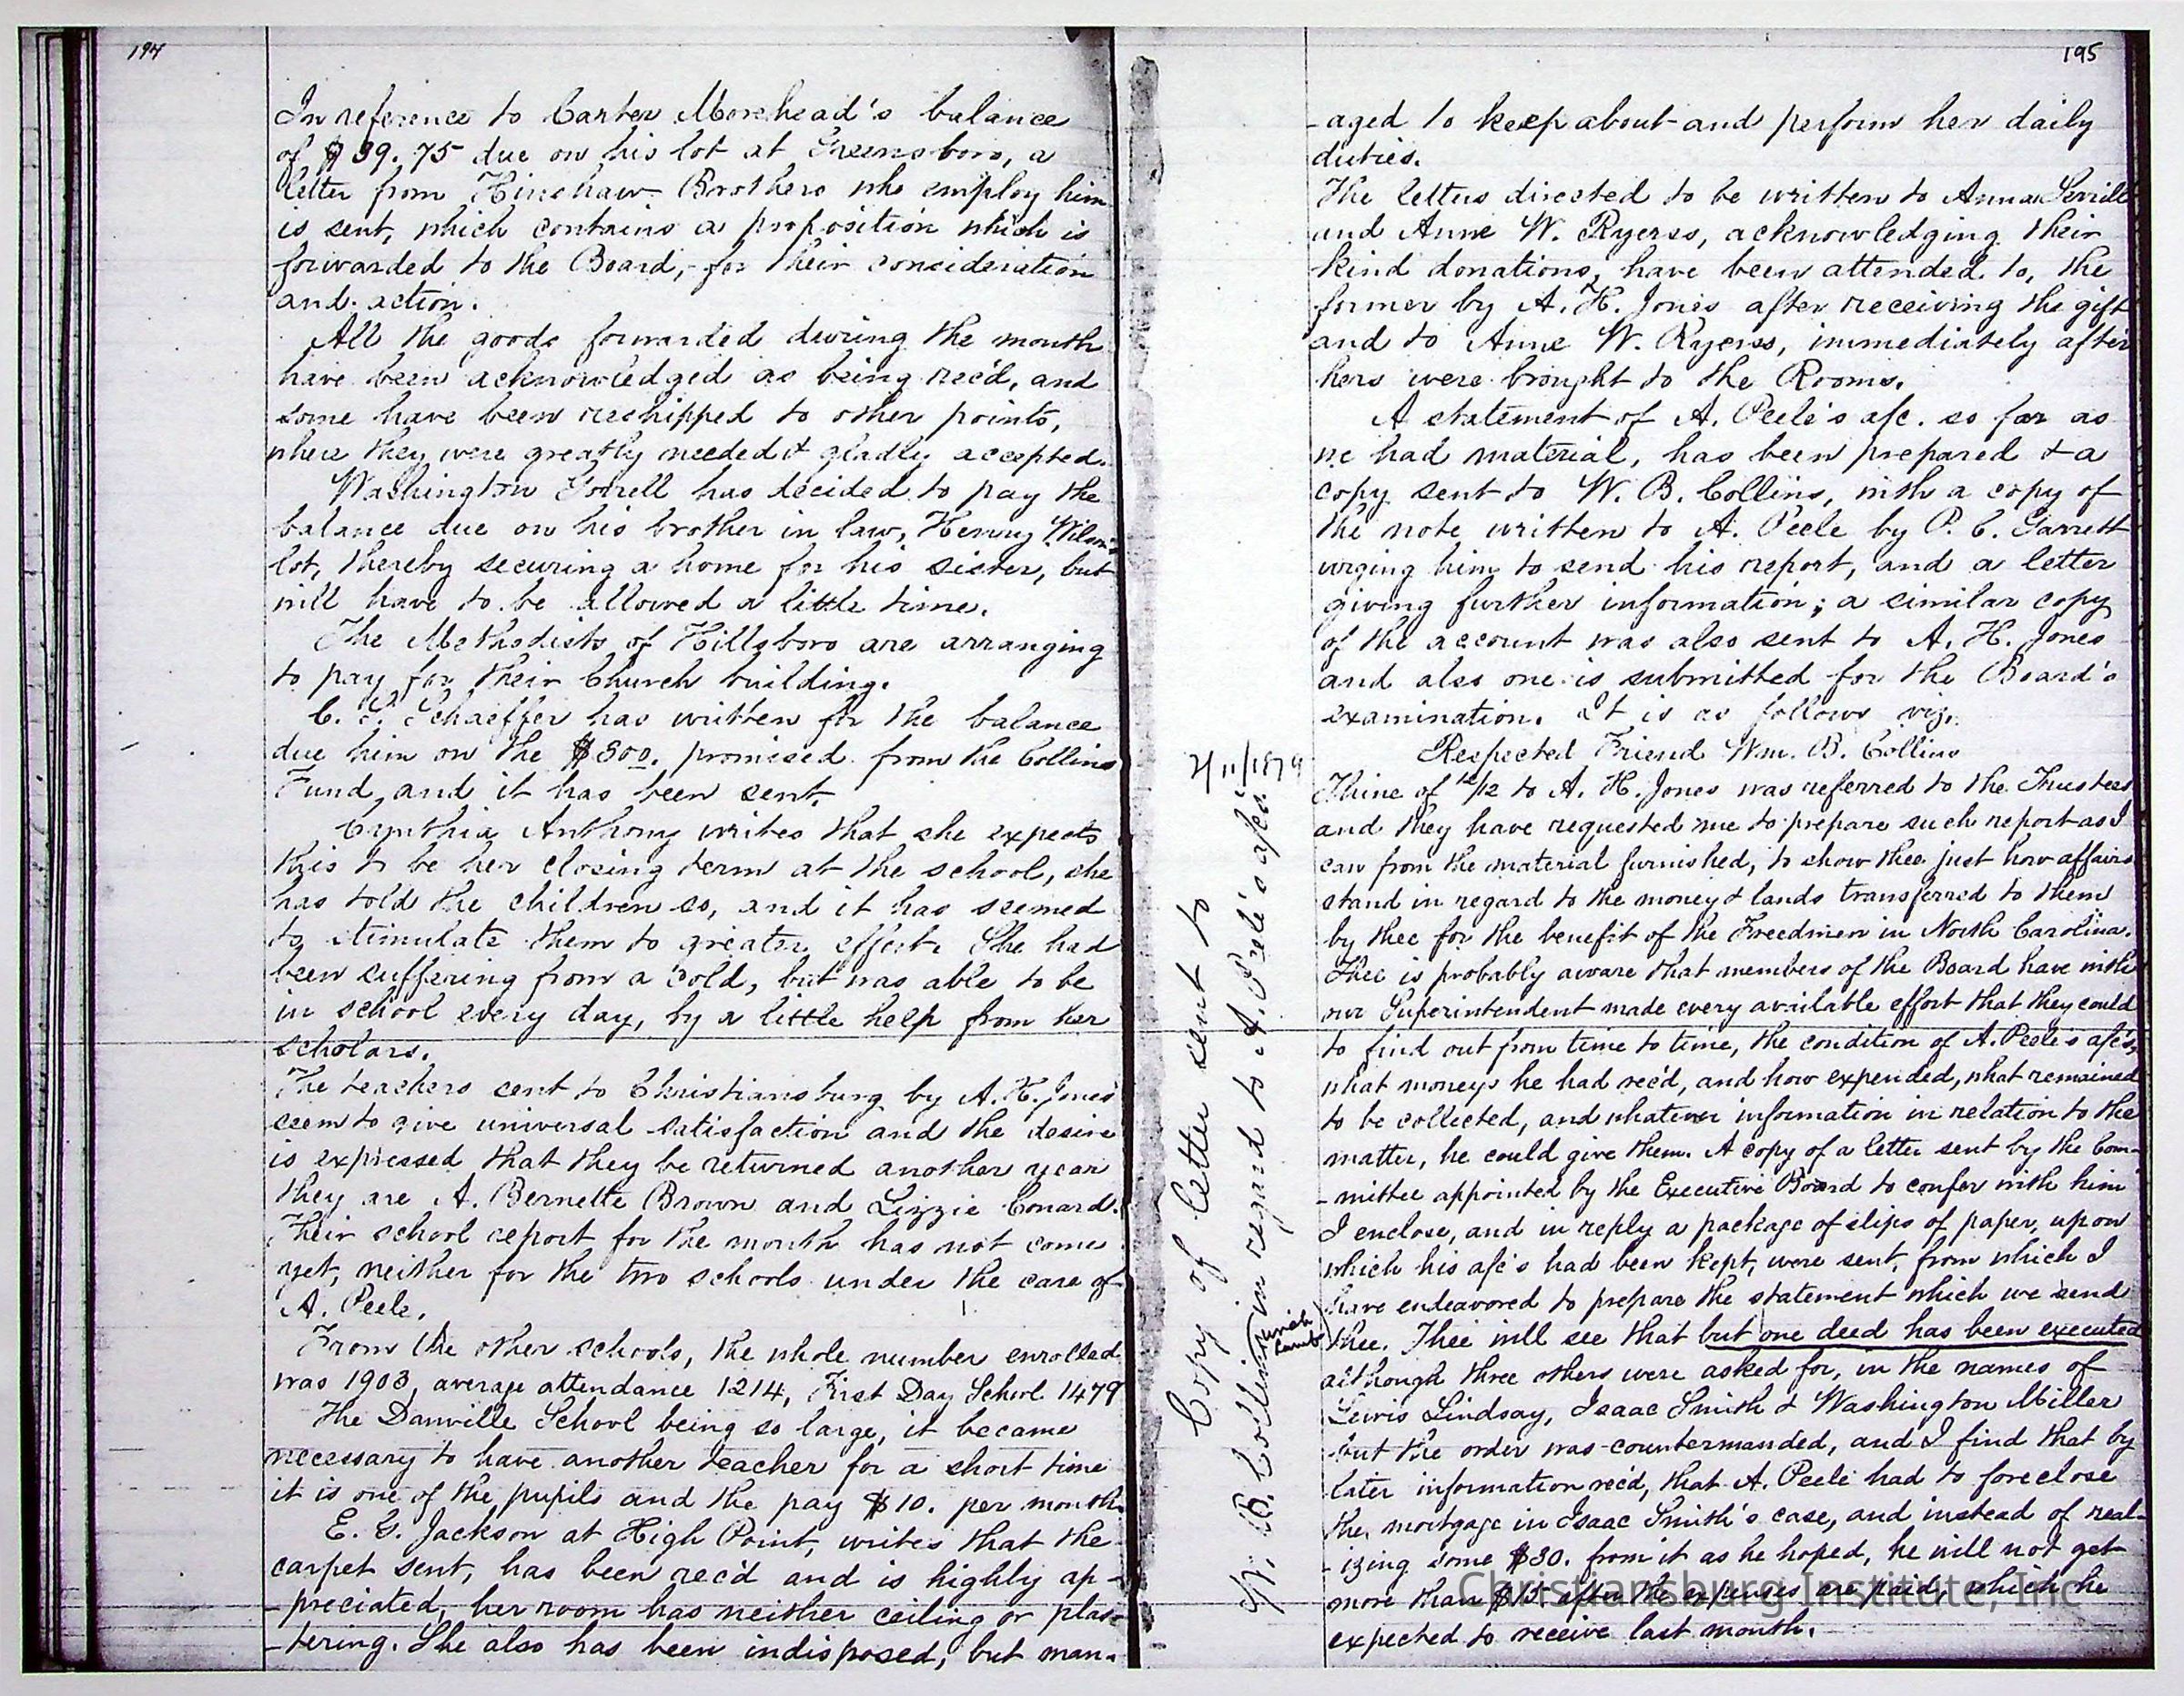 194
In reference to Carter Morehead's balance
of $39.75 due on his lot at Greensboro, a
letter from Hinshaw Brothers who employ him
is sent, which contains a proposition which is
forwarded to the Board, for their consideration
and action.
All the goods forwarded during the month
have been acknowledged as being rec'd, and
some have been reshipped to other points,
where they were greatly needed & gladly accepted.
Washington Torrell has decided to pay the
balance due on his brother in law, Henry Wilson's
lot, thereby securing a home for his sister, but
will have to be allowed a little time.
The Methodists of Hillsboro are arranging
to pay for their Church building.
C. S. Schaeffer has written for the balance
due him on the $300. promised from the Collins
Fund, and it has been sent.
Cynthia Anthony writes that she expects
this to be her closing term at the school, she
has told the children so, and it has seemed
to stimulate them to greater effort. She had
been suffering from a cold, but was able to be
in school every day, by a little help from her
scholars.
The teachers sent to Christiansburg by A. H. Jones
seem to give universal satisfaction and the desire
is expressed that they be returned another year
they are A. Bernette Brown and Lizzie Conard.
Their school report for the month has not come
yet, neither for the two schools under the care of
A. Peele.
From the other schools, the whole number enrolled
was 1903, average attendance 1214, First Day School 1479
The Danville School being so large, it became
necessary to have another teacher for a short time
it is one of the pupils and the pay $10. per month.
E. G. Jackson at High Point, writes that the
carpet sent, has been rec'd and is highly ap-
-preciated, her room has neither ceiling or plas-
-tering. She also has been indisposed, but man-
195
-aged to keep about and perform her daily
duties.
The letters directed to be written to Anna Serrill
and Anne W. Ryerss, acknowledging their
kind donations, have been attended to, the
former by A. H. Jones after receiving the gift
and to Anne W. Ryerss, immediately after
hers were brought to the Rooms.
A statement of A. Peele's a/c. so far as
we had material, has been prepared & a
copy sent to W. B. Collins, with a copy of
the note written to A. Peele by P. C. Garrett
urging him to send his report, and a letter
giving further information; a similar copy
of the account was also sent to A. H. Jones
and also one is submitted for the Board's
examination. It is as follows viz.
Respected Friend Wm. B. Collins
Thine of 12/12 to A. H. Jones was referred to the Trustees
and they have requested me to prepare such report as I
can from the material furnished, to show thee just how affairs
stand in regard to the money & lands transferred to them
by thee for the benefit of the Freedmen in North Carolina.
Thee is probably aware that members of the Board have with
our Superintendent made every available effort that they could
to find out from time to time, the condition of A. Peele's a/c's,
what moneys he had rec'd, and how expended, what remained
to be collected, and whatever information in relation to the
matter, he could give them. A copy of a letter sent by the Com-
-mittee appointed by the Executive Board to confer with him
I enclose, and in reply a package of slips of paper, upon
which his a/c's had been kept, were sent, from which I
have endeavored to prepare the statement which we send
thee. Thee will see that but one deed has been executed
although three others were asked for, in the names of
Lewis Lindsay, Isaac Smith & Washington Miller
but the order was countermanded, and I find that by
later information rec'd, that A. Peele had to foreclose
the mortgage in Isaac Smith's case, and instead of real-
-izing some $30. from it as he hoped, he will not get
more than $15 after the expenses are paid, which he
expected to receive last month.
Copy of letter sent to
W. B. Collins in regard to A. Peele's a/cs.
2/11/1879
Christiansburg Institute, Inc